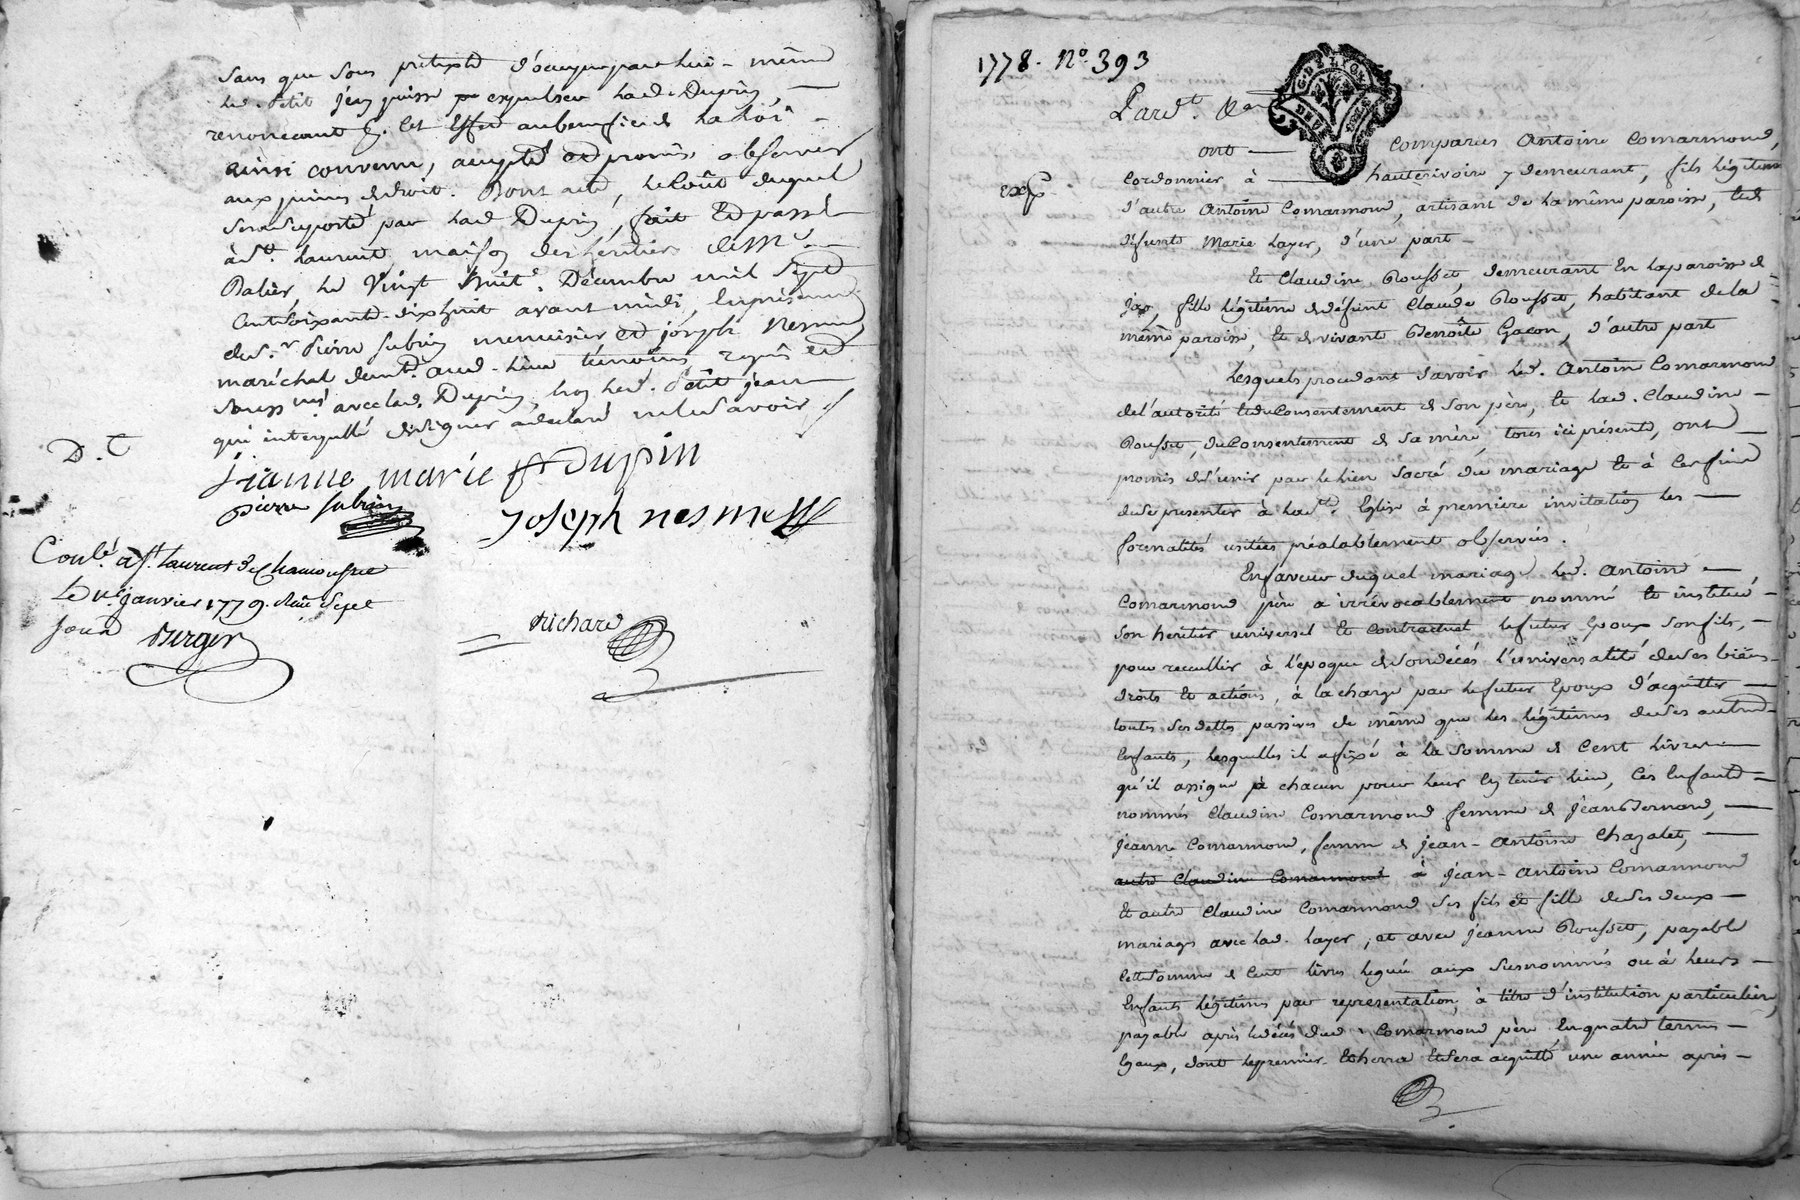 sans que sous pretexte d'occuper par lui-même
led. Petit jean puisse expulser lad. Dupin,
renonceant à cet effet au benefice de la loi
ainsi convenu, accepté et promis observer
aux peines de droit. Dont acte, le coût duquel
sera suporté par lad. Dupin, fait et passé
à St. laurent, maison des héritiers de Me.
le Vingt huit Décembre mil sept
cent soixante-dixhuit avant midi, en présence
de sr. Pierre Subrin menuisier et joseph Nesme
maréchal demt. aud. lieu témoins requis et
soussnés. avec lad. Dupin, non led. Petit jean
qui interpellé de signer a déclaré ne le savoir
D. C
jeanne marie Dupin
pierre subrin
Joseph nesme
Conlé. à St. Laurent de Chamousset
Le janvier 1779. Reçu Sept
Berger
Richard
1778. No. 393
Pardt.
ont comparus Antoine Comarmond,
exp
cordonnier à hauterivoire y demeurant, fils légitime
d'autre Antoine Comarmond, artisan de la même paroisse, et de
défunte Marie Layer, d'une part
Et Claudine Rousset, demeurant en la paroisse de
fille légitime de défunt Claude Rousset, habitant de la
même paroisse, et de vivante Benoîte Gacon, d'autre part
Lesquels procedant savoir led. Antoine Comarmond
de l'autorité et du consentement de son père, et lad. Claudine
Rousset, du consentement de sa mère, tous ici présents, ont
promis de s'unir par le lien sacré du mariage et à ces fins
de se presenter à la Ste. Eglise à premiere invitation les
formalités usitées préalablement observées.
En faveur duquel mariage led. Antoine
Comarmond père a irrévocablement nommé et institué
son heritier universel et contractuel le futur Epoux son fils,
pour recueillir à l'époque de son décés l'universalité de ses biens
droits et actions, à la charge par le futur Epoux d'acquitter
toutes ses dettes passives de même que les légitimes de ses autres
Enfants, lesquelles il a fixé à la somme de Cent livres
qu'il assigne à chacun pour leur en tenir lieu, ces Enfants
nommés Claudine Comarmond femme de Jean Bernard,
Jeanne Comarmond, femme de Jean-Antoine Chazalet,
autre Claudine Comarmond à Jean-Antoine Comarmond
et autre Claudine Comarmond ses fils et fille de ses deux
mariages avec lad. Layer, et avec Jeanne Rousset, payable
cette somme de Cent livres leguée aux susnommés ou à leurs
Enfants légitimes par representation, à titre d'institution particulière,
payable après le décès dud. Comarmond père en quatre termes
Egaux, dont le premier Echerra et sera acquitté une année après